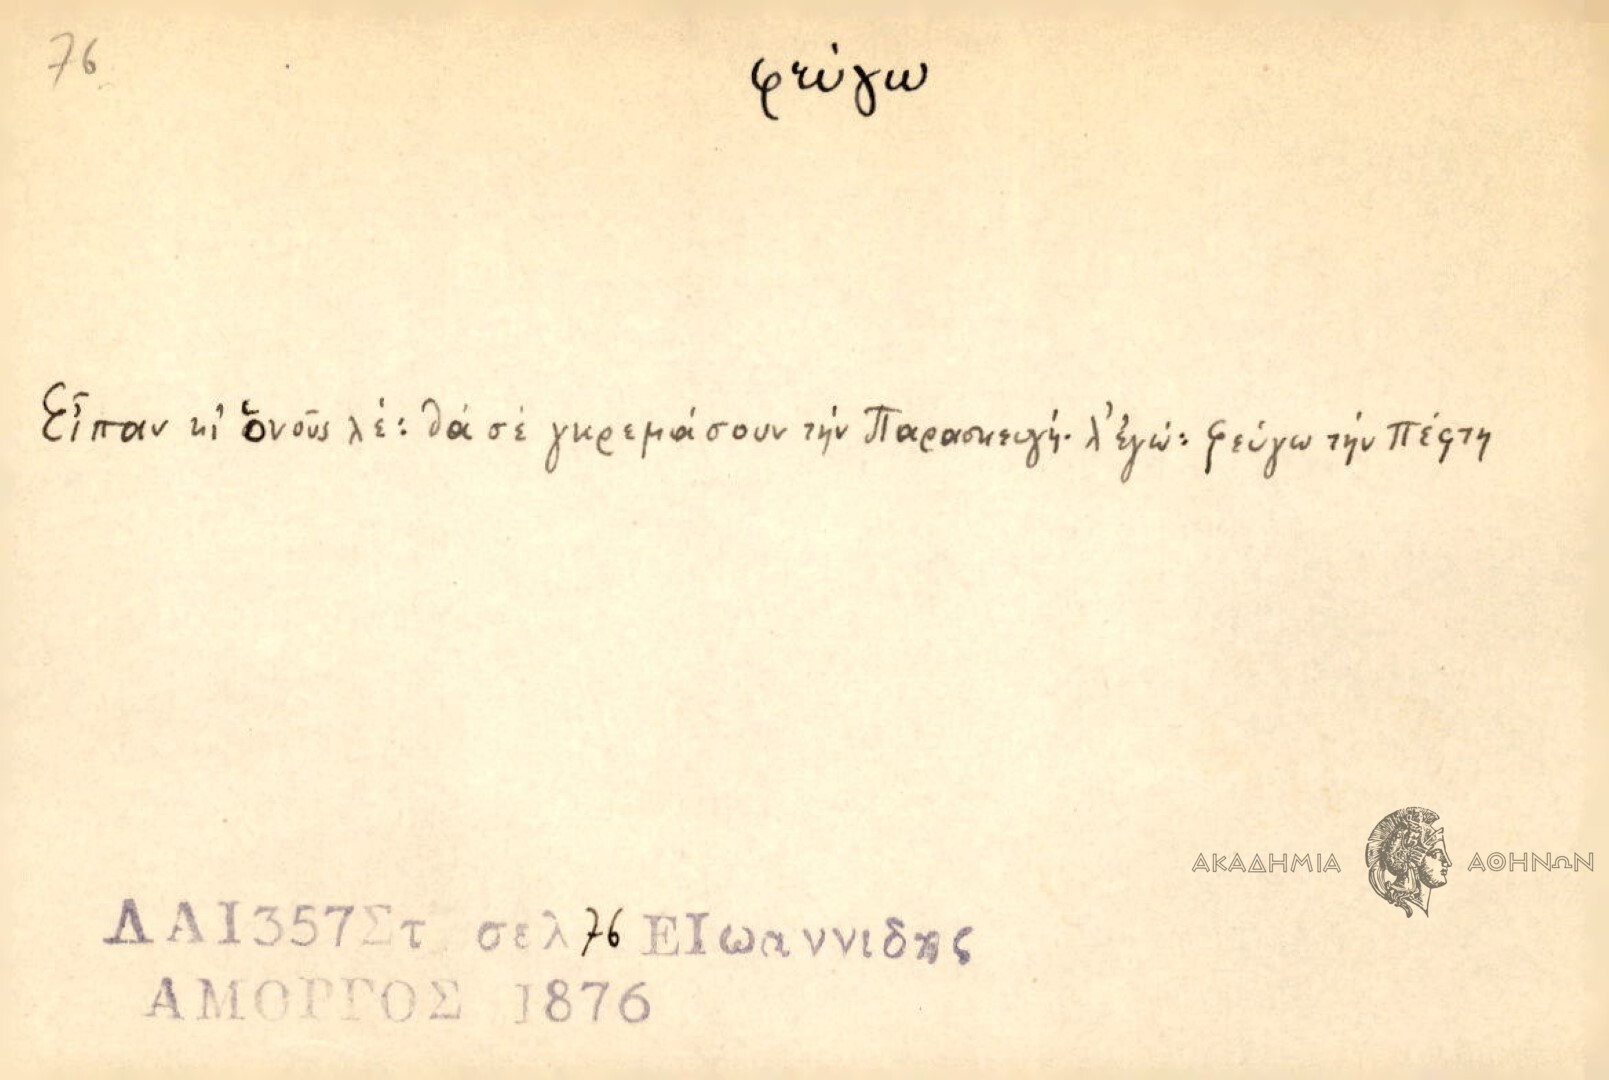 76
φεύγω
Εἶπαν κι' ὁνοῦς λέ: θά σέ γκρεμάσουν τήν Παρασκευγή. λ' ἐγώ: φεύγω τήν Πέφτη
ΑΚΑΔΗΜΙΑ ΑΘΗΝΩΝ
ΛΑΙ357Στ σελ 76 ΕΙωαννιδης
ΑΜΟΡΓΟΣ 1876